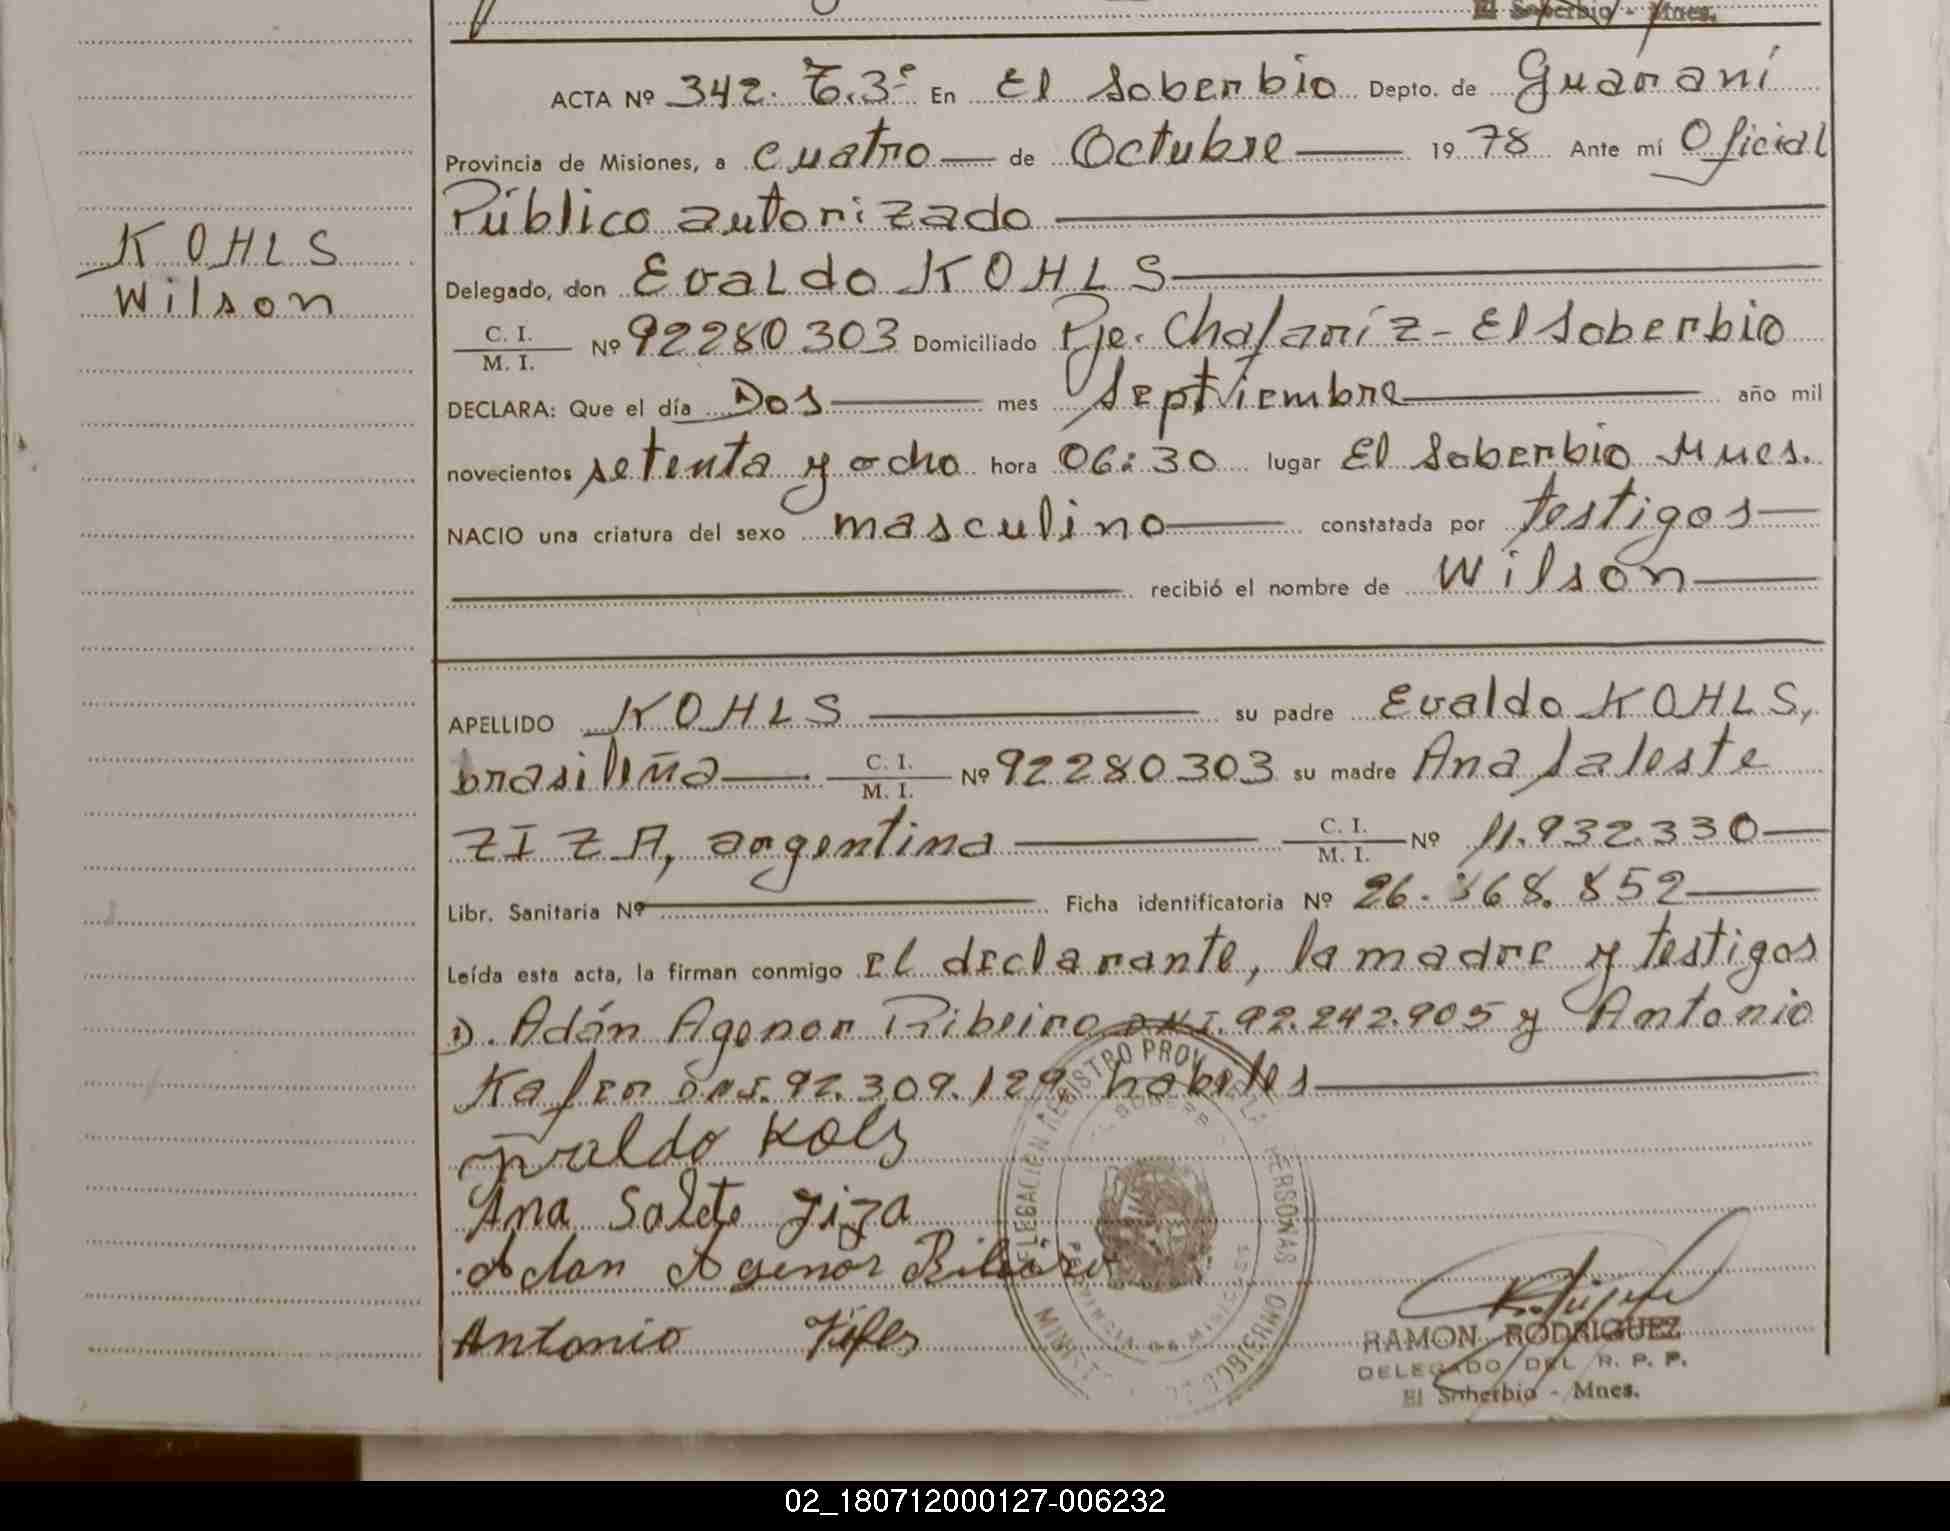 El Soberbio - Mnes.
ACTA Nº 342. T.3º En El Soberbio Depto. de Guaraní
Provincia de Misiones, a cuatro de Octubre 1978 Ante mí Oficial
Público autorizado
KOHLS
Wilson
Delegado, don Evaldo KOHLS
C. I.
M. I. Nº 92280303 Domiciliado Pje. Chafaríz - El Soberbio
DECLARA: Que el día Dos mes Septiembre año mil
novecientos setenta y ocho hora 06:30 lugar El Soberbio Mnes.
NACIO una criatura del sexo masculino constatada por testigos
recibió el nombre de Wilson
APELLIDO KOHLS su padre Evaldo KOHLS,
brasileña C. I.
M. I. Nº 92280303 su madre Ana Saleste
ZIZA, argentina C. I.
M. I. Nº 11.932.330
Libr. Sanitaria Nº Ficha identificatoria Nº 26.368.852
Leída esta acta, la firman conmigo el declarante, la madre y testigos
D. Adán Agenor Ribeiro DNI. 92.242.905 y Antonio
Kafer DNI. 92.309.129 habiles
Ana Salete Ziza
Adan Agenor Ribeiro
Antonio
DELEGACION REGISTRO PROV. PERSONAS
PROVINCIA DE MISIONES
GOBIERNO
RAMON RODRIGUEZ
DELEGADO DEL R. P. P.
El Soberbio - Mnes.
02_180712000127-006232